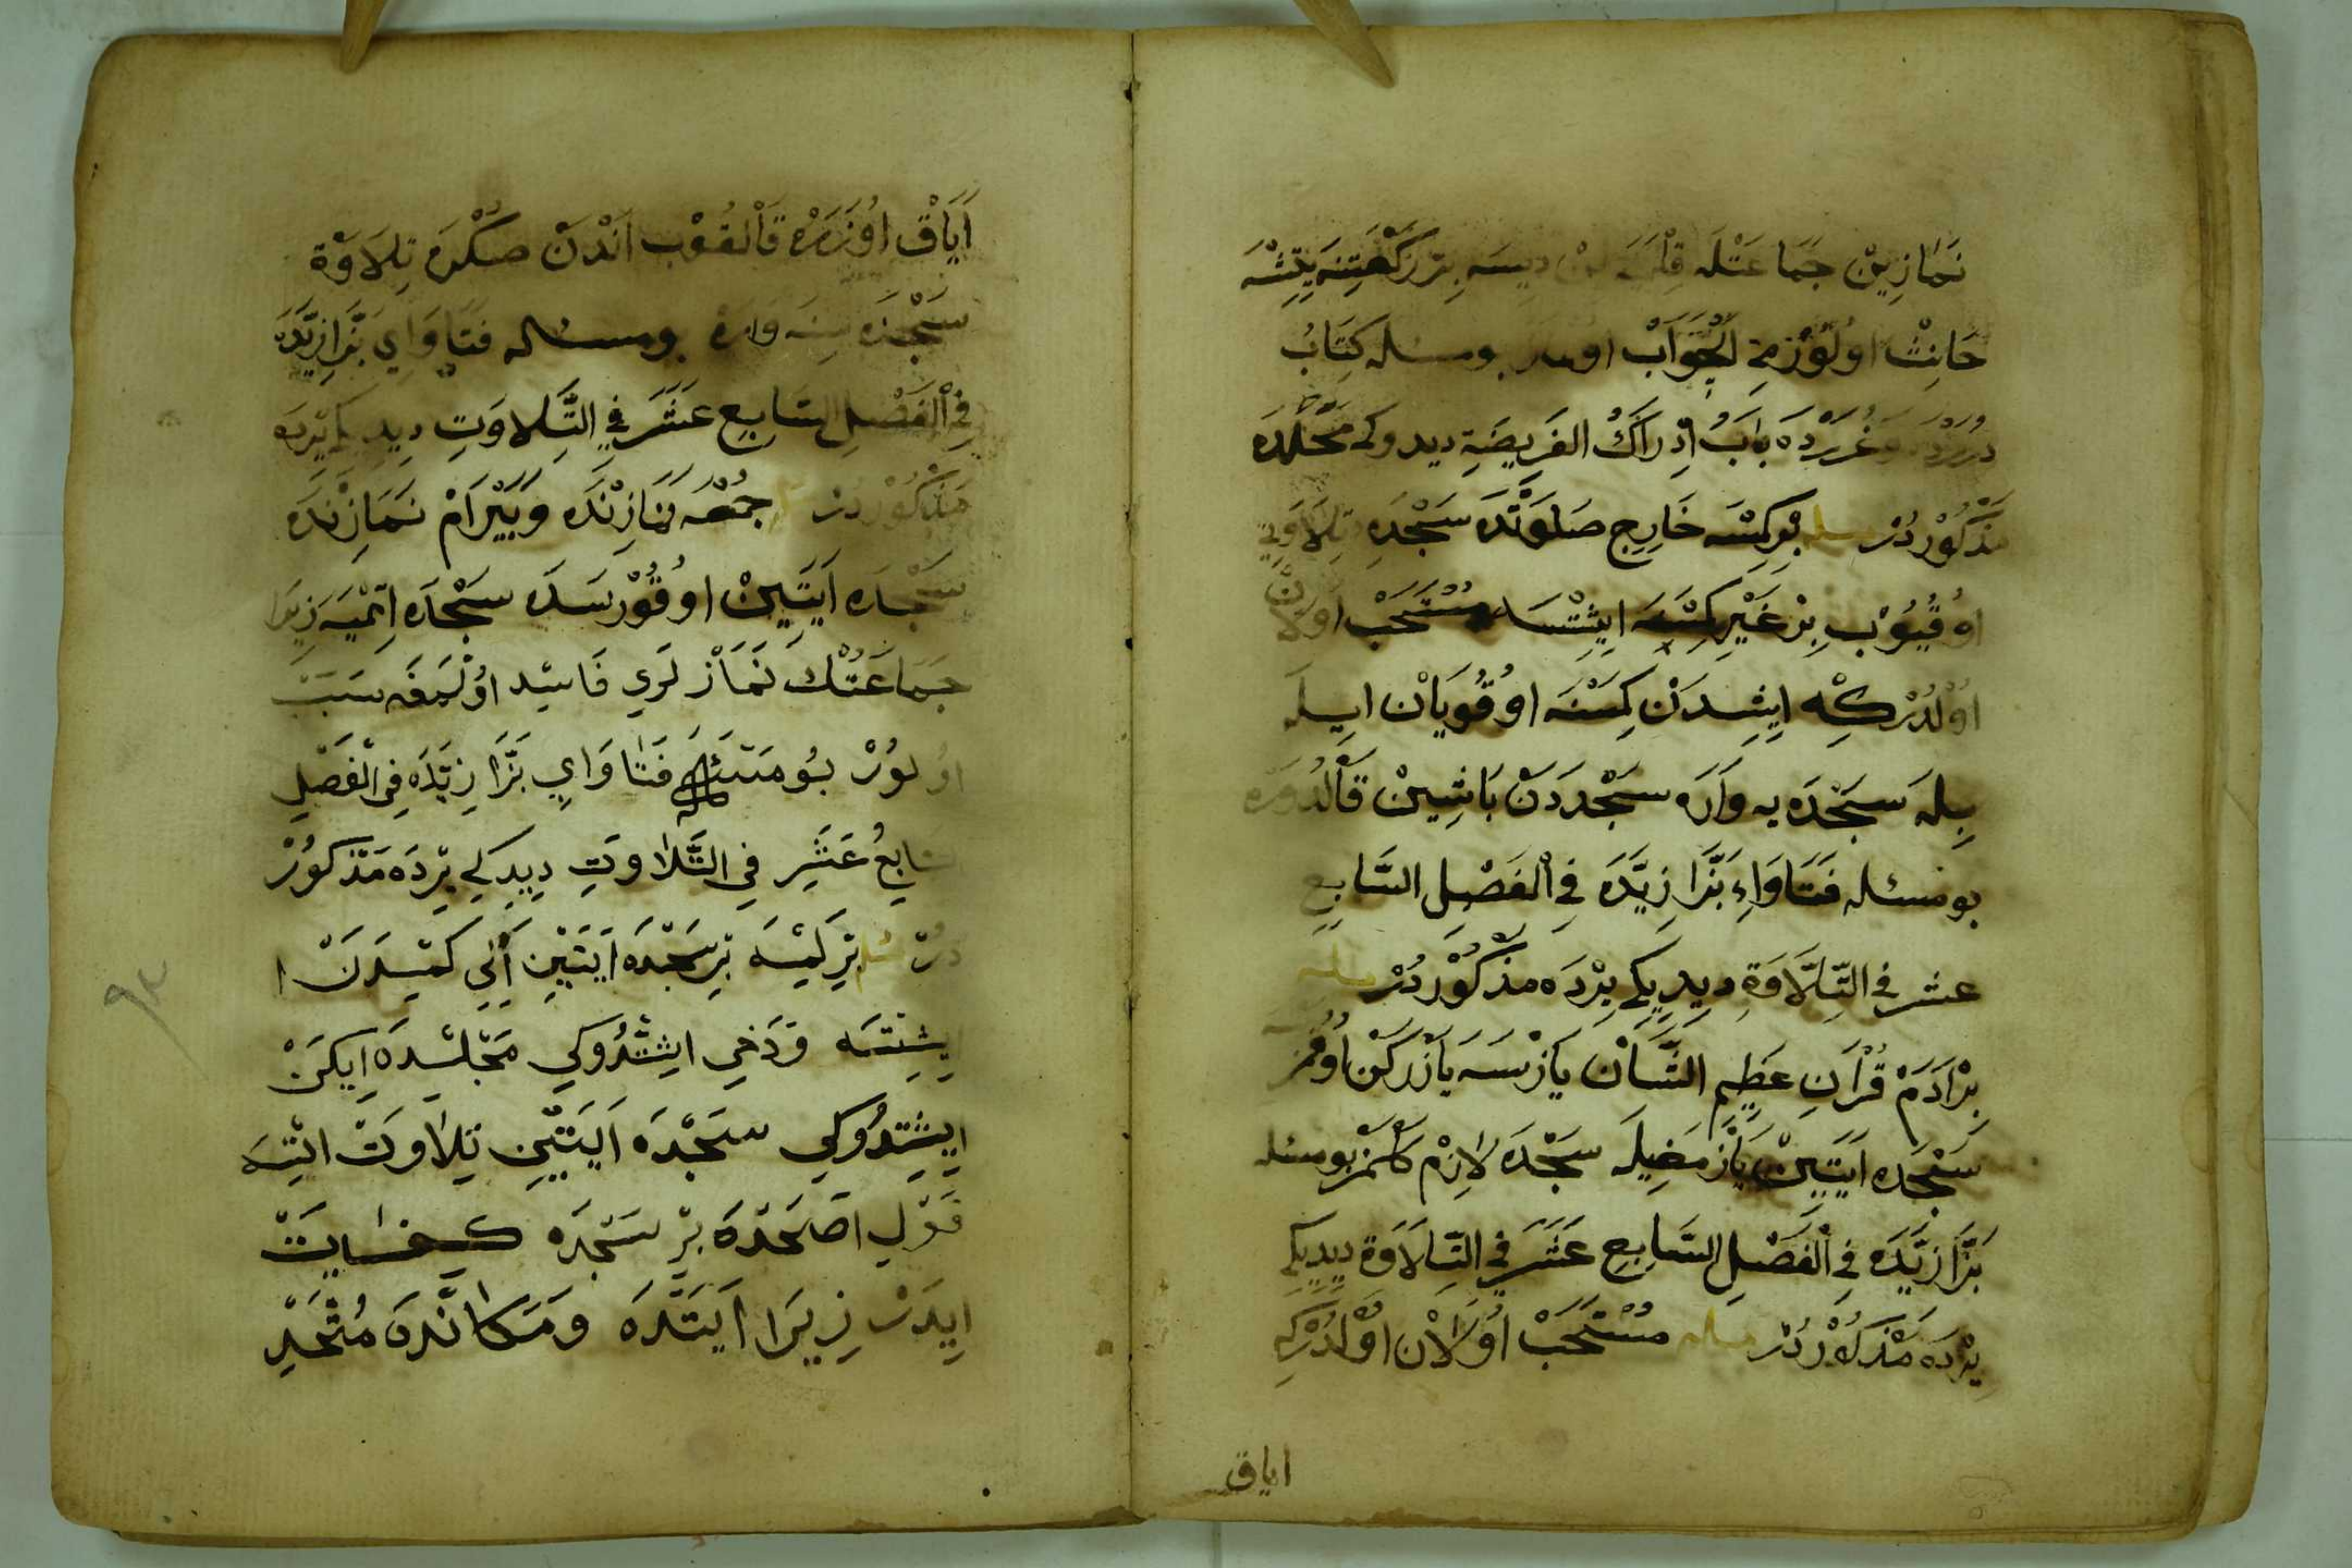 نَمَازِيْنْ جَمَاعَتْلَه دِيسَه بِرْ رَكْعَتِنَه يِتِشْسَه
حَانِثْ اولُوْرْمِ اَلْجَوَابْ اولمز بومسئله كِتَابُ
دُرَرْدَه وَغُرَرْدَه بَابُ اِدْرَاكُ الفَرِيضَةِ ديدوكى مَحَلْدَه
مَذْكُوْردُرْ مسئله بْرِكِمْسَه خَارِجِ صَلوَتْدَه سَجْدَۀِ تِلاَوَتِي
اوُقُيُوْبْ بِرْ غَيْرِ كِمْسَه ايشِتْسَه مُسْتَحَبْ اولاَنْ
اوْلْدُرْكِه ايشِدَنْ كِمْسَنَه اوُقُويَانْ ايلَه
بِيلَه سَجْدَه يه وَارَه سَجْدَدَنْ بَاشِينْ قَالْدُرَه
بو مسئله فَتَاوَاءِ بَزَّازِيَّدَه فِي اْلفَصْلِ السَّابِعِ
عشر في التِّلَاوَةِ ديدِيكِي يِرْدَه مذكُوْردُرْ مسئله
بِرْ اَدَمْ قُرْاَنِ عَظِيمِ الشَّانْ يَازْسَه يَازَركَنْ اوُقُمَزْ
سَجْدَه اَيَتِينْ يَازْمَغِيلَه سَجْدَه لاَزِمْ كَلْمَزْ بومسئله
بَزَّازِيَّدَه فِي اْلفَصْلِ السَّابِعِ عَشَرَ فِي التِّلاَوَةِ ديدِيكِي
يِرْدَه مَذْكُوْردُرْ مسئله مُسْتَحَبْ اوُلاَنْ اوْلدُرْكِه
اياق
اَيَاقْ اوُزَرَه قَالْقُوْبْ اَنْدَنْ صكْرَه تِلاَوَة
سَجْدَه سِنَه وَارَه بومسئله فتَاوَايِ بَزَّازِيَّدَه
فِي اْلفَصْلِ السَّابِعِ عَشَرَ فِي التِّلاوَتِ دِيدِيكِي يِرْدَه
مَذْكُوْردُرْ جُمْعَه نَمَازِنْدَه وَبَيْرَامْ نَمَازِنْدَه
سَجْدَه اَيَتِينْ اوُقُوْرسَدَه سَجْدَه اِتْمَيَه زِيرَا
جَمَاعَتُكْ نَمَازْلَرِي فَاسِد اوُلْمَغَه سَبَبْ
اوُلوُرْ بُو مَسْئَلَه فَتَاوَايِ بَزَّازِيَّدَه فِي الْفَصْلِ
السَّابِعُ عَشَرِ فِي التِّلاَوَتِ دِيدِكِي يِرْدَه مَذكُورْ
دُرْ مسئله بِرْ كِمْسَه بِرْ سَجْدَه اَيَتِينِ اِكِي كَمْسَدَنْ ا
يشِتْسَه وَدَخِي ايشِتْدُوكِي مَجْلِسْدَه اِيكَنْ
ايشِتِدُوكِي سَجْدَه اَيَتِينِ تِلاَوَتْ ايتْسَه
قَوْلِ اصَحْدَه بِرْ سَجْدَه كِفَايَتْ
اِيدَرْ زِيرَا اَيَتْدَه وَمَكَانْدَه مُتَّحَدِ
٩٣